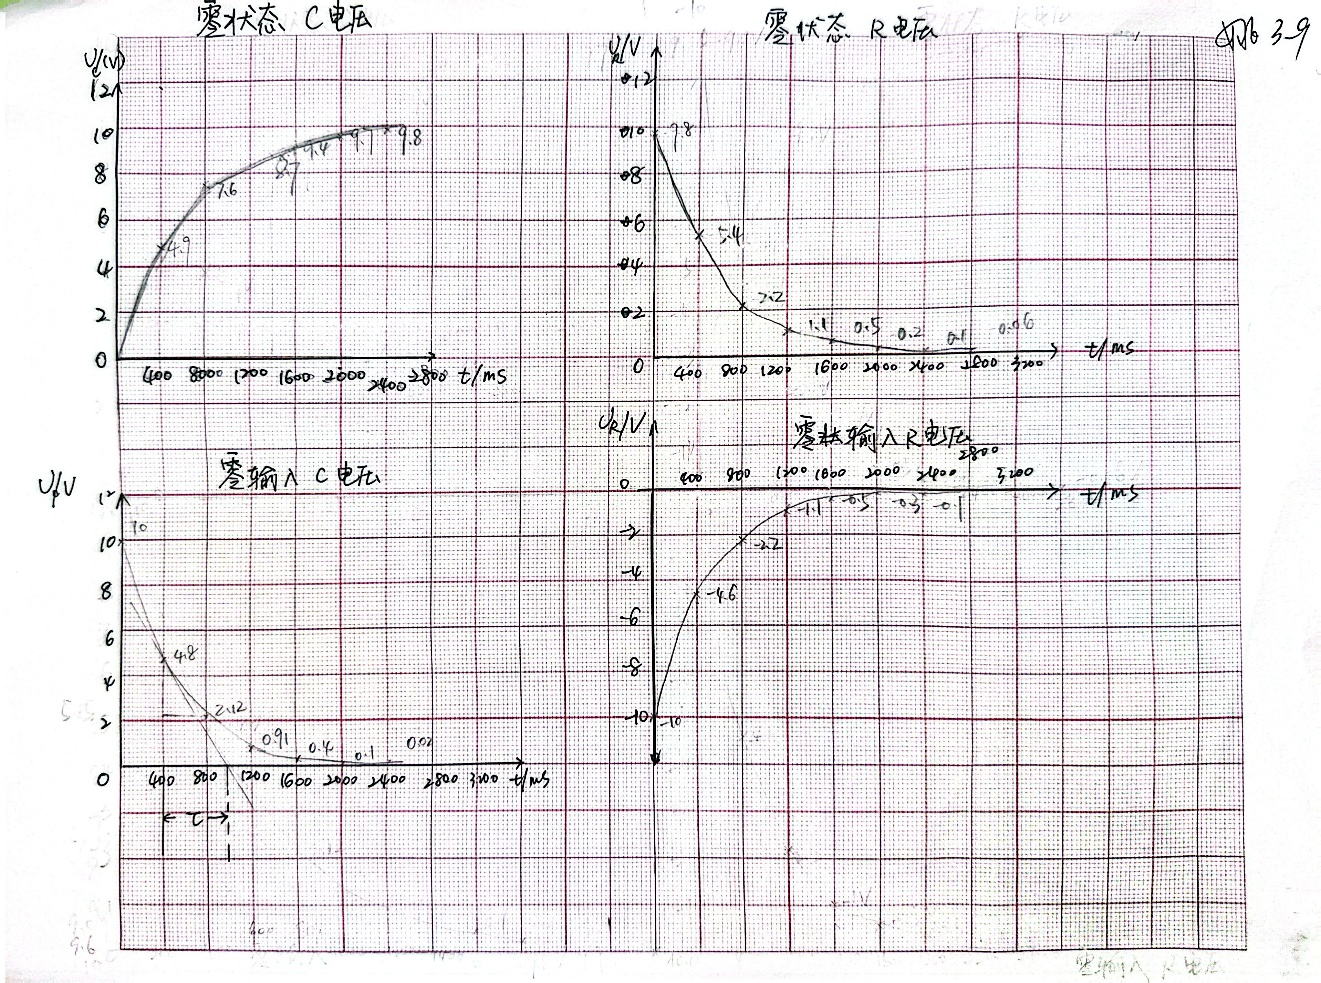 零状态 C 电压
零状态 R 电压
3-9
12
10
8
6
4
2
0
4.9
7.6
8.7
9.4
9.7
9.8
400 8000 1200 1600 2000 2400 2800 t/ms
12
10
8
6
4
2
0
9.8
5.4
2.2
1.1
0.5
0.2
0.1
0.06
400 800 1200 1600 2000 2400 2800 3200 t/ms
零输入 C 电压
12
10
8
6
4
2
0
10
4.8
2.12
0.91
0.4
0.1
0.02
400 800 1200 1600 2000 2400 2800 3200 t/ms
τ
UR/V
输入 R 电压
400 800 1200 1600 2000 2400 2800 3200 t/ms
0
-2
-4
-6
-8
-10
-10
-4.6
-2.2
-1.1
-0.5
-0.3
-0.1
9.6
零输入 R 电压